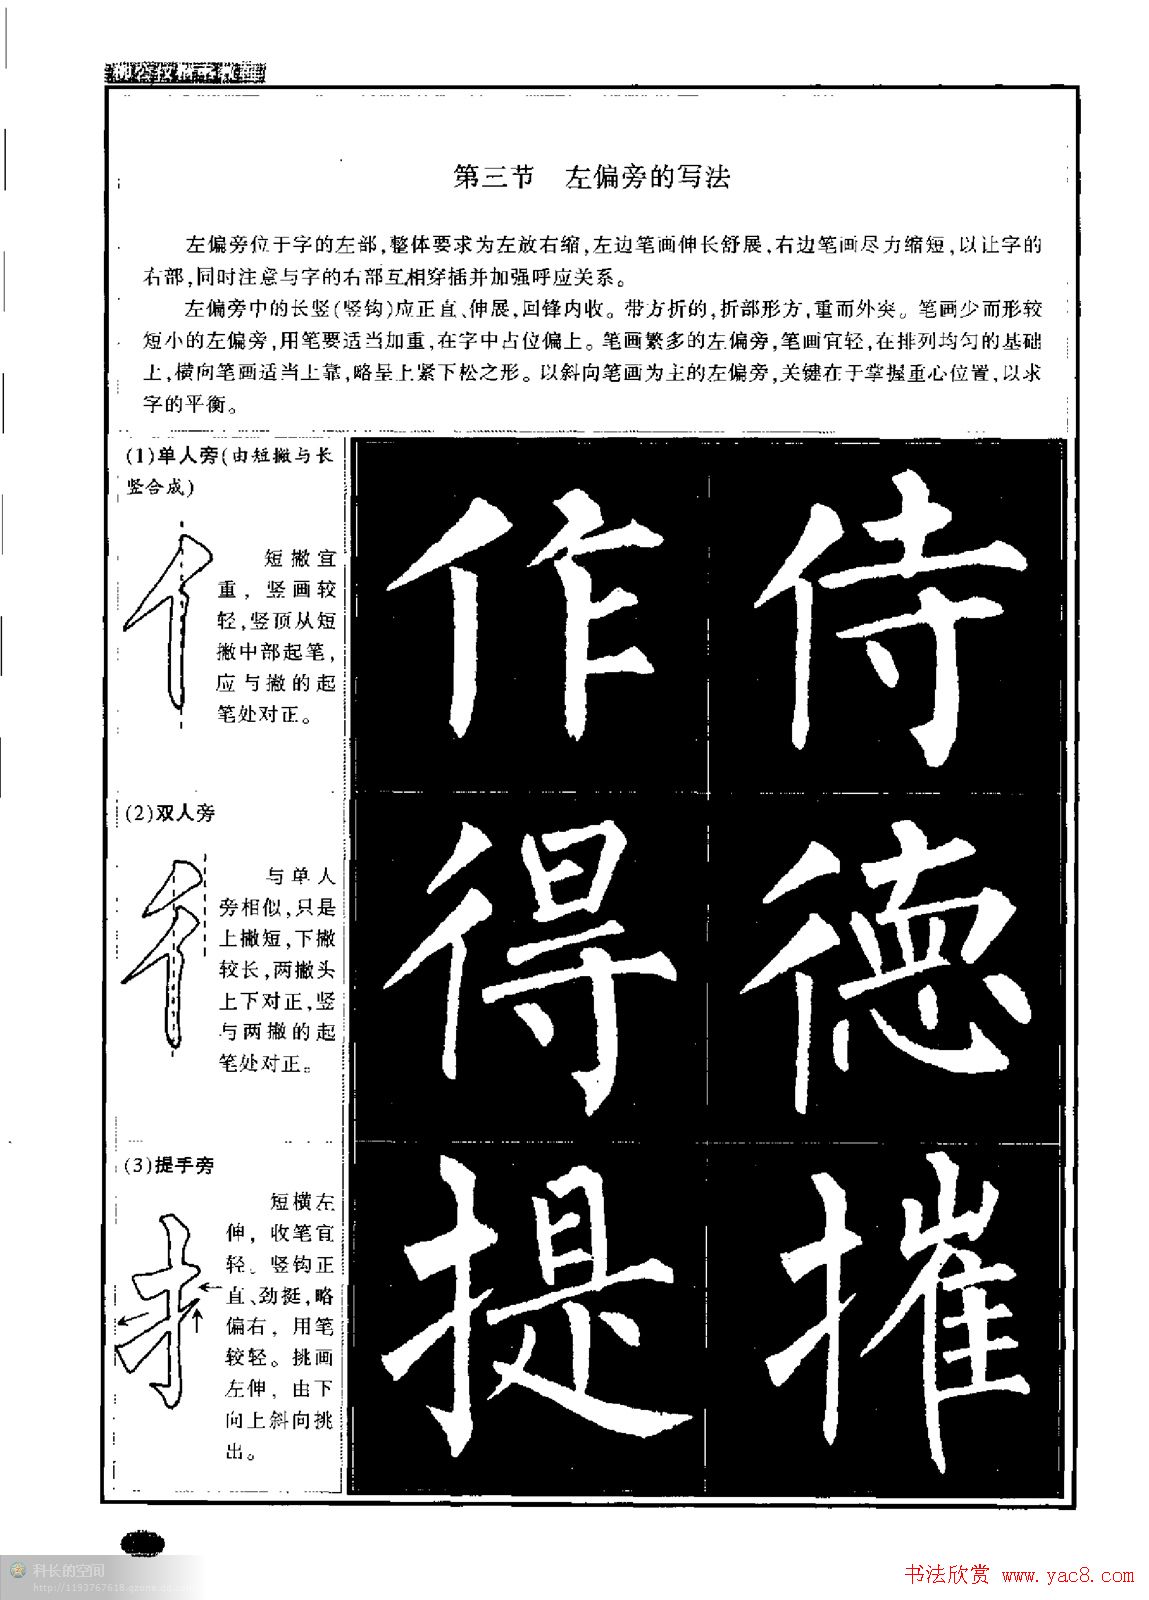 第三节 左偏旁的写法
左偏旁位于字的左部,整体要求为左放右缩,左边笔画伸长舒展,右边笔画尽力缩短,以让字的
右部,同时注意与字的右部互相穿插并加强呼应关系。
左偏旁中的长竖(竖钩)应正直、伸展,回锋内收。带方折的,折部形方,重而外突。笔画少而形较
短小的左偏旁,用笔要适当加重,在字中占位偏上。笔画繁多的左偏旁,笔画宜轻,在排列均匀的基础
上,横向笔画适当上靠,略呈上紧下松之形。以斜向笔画为主的左偏旁,关键在于掌握重心位置,以求
字的平衡。
(1)单人旁(由短撇与长
竖合成)
短撇宜
重,竖画较
轻,竖顶从短
撇中部起笔,
应与撇的起
笔处对正。
作 侍
(2)双人旁
与单人
旁相似,只是
上撇短,下撇
较长,两撇头
上下对正,竖
与两撇的起
笔处对正。
得 德
(3)提手旁
短横左
伸,收笔宜
轻。竖钩正
直、劲挺,略
偏右,用笔
较轻。挑画
左伸,由下
向上斜向挑
出。
提 摧
科长的空间
http://1193767618.qzone.qq.com
书法欣赏 www.yac8.com